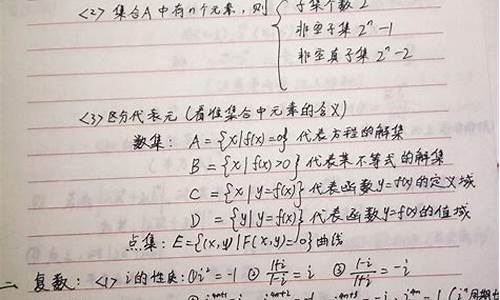 <2> 集合A中有n个元素，则 { 子集个数 2ⁿ
非空子集 2ⁿ-1
非空真子集 2ⁿ-2
<3> 区分代表元 (看准集合中元素的含义)
数集: A={x|f(x)=0} 代表方程的解集
B={x|f(x)>0} 代表某不等式的解集
C={x|y=f(x)} 代表函数y=f(x)的定义域
D={y|y=f(x)} 代表函数y=f(x)的值域
点集: E={(x,y)|F(x,y)=0} 曲线
二 复数: <1> i的性质: ① i²=-1 ② 1+i/1-i=i ③ 1-i/1+i=-i